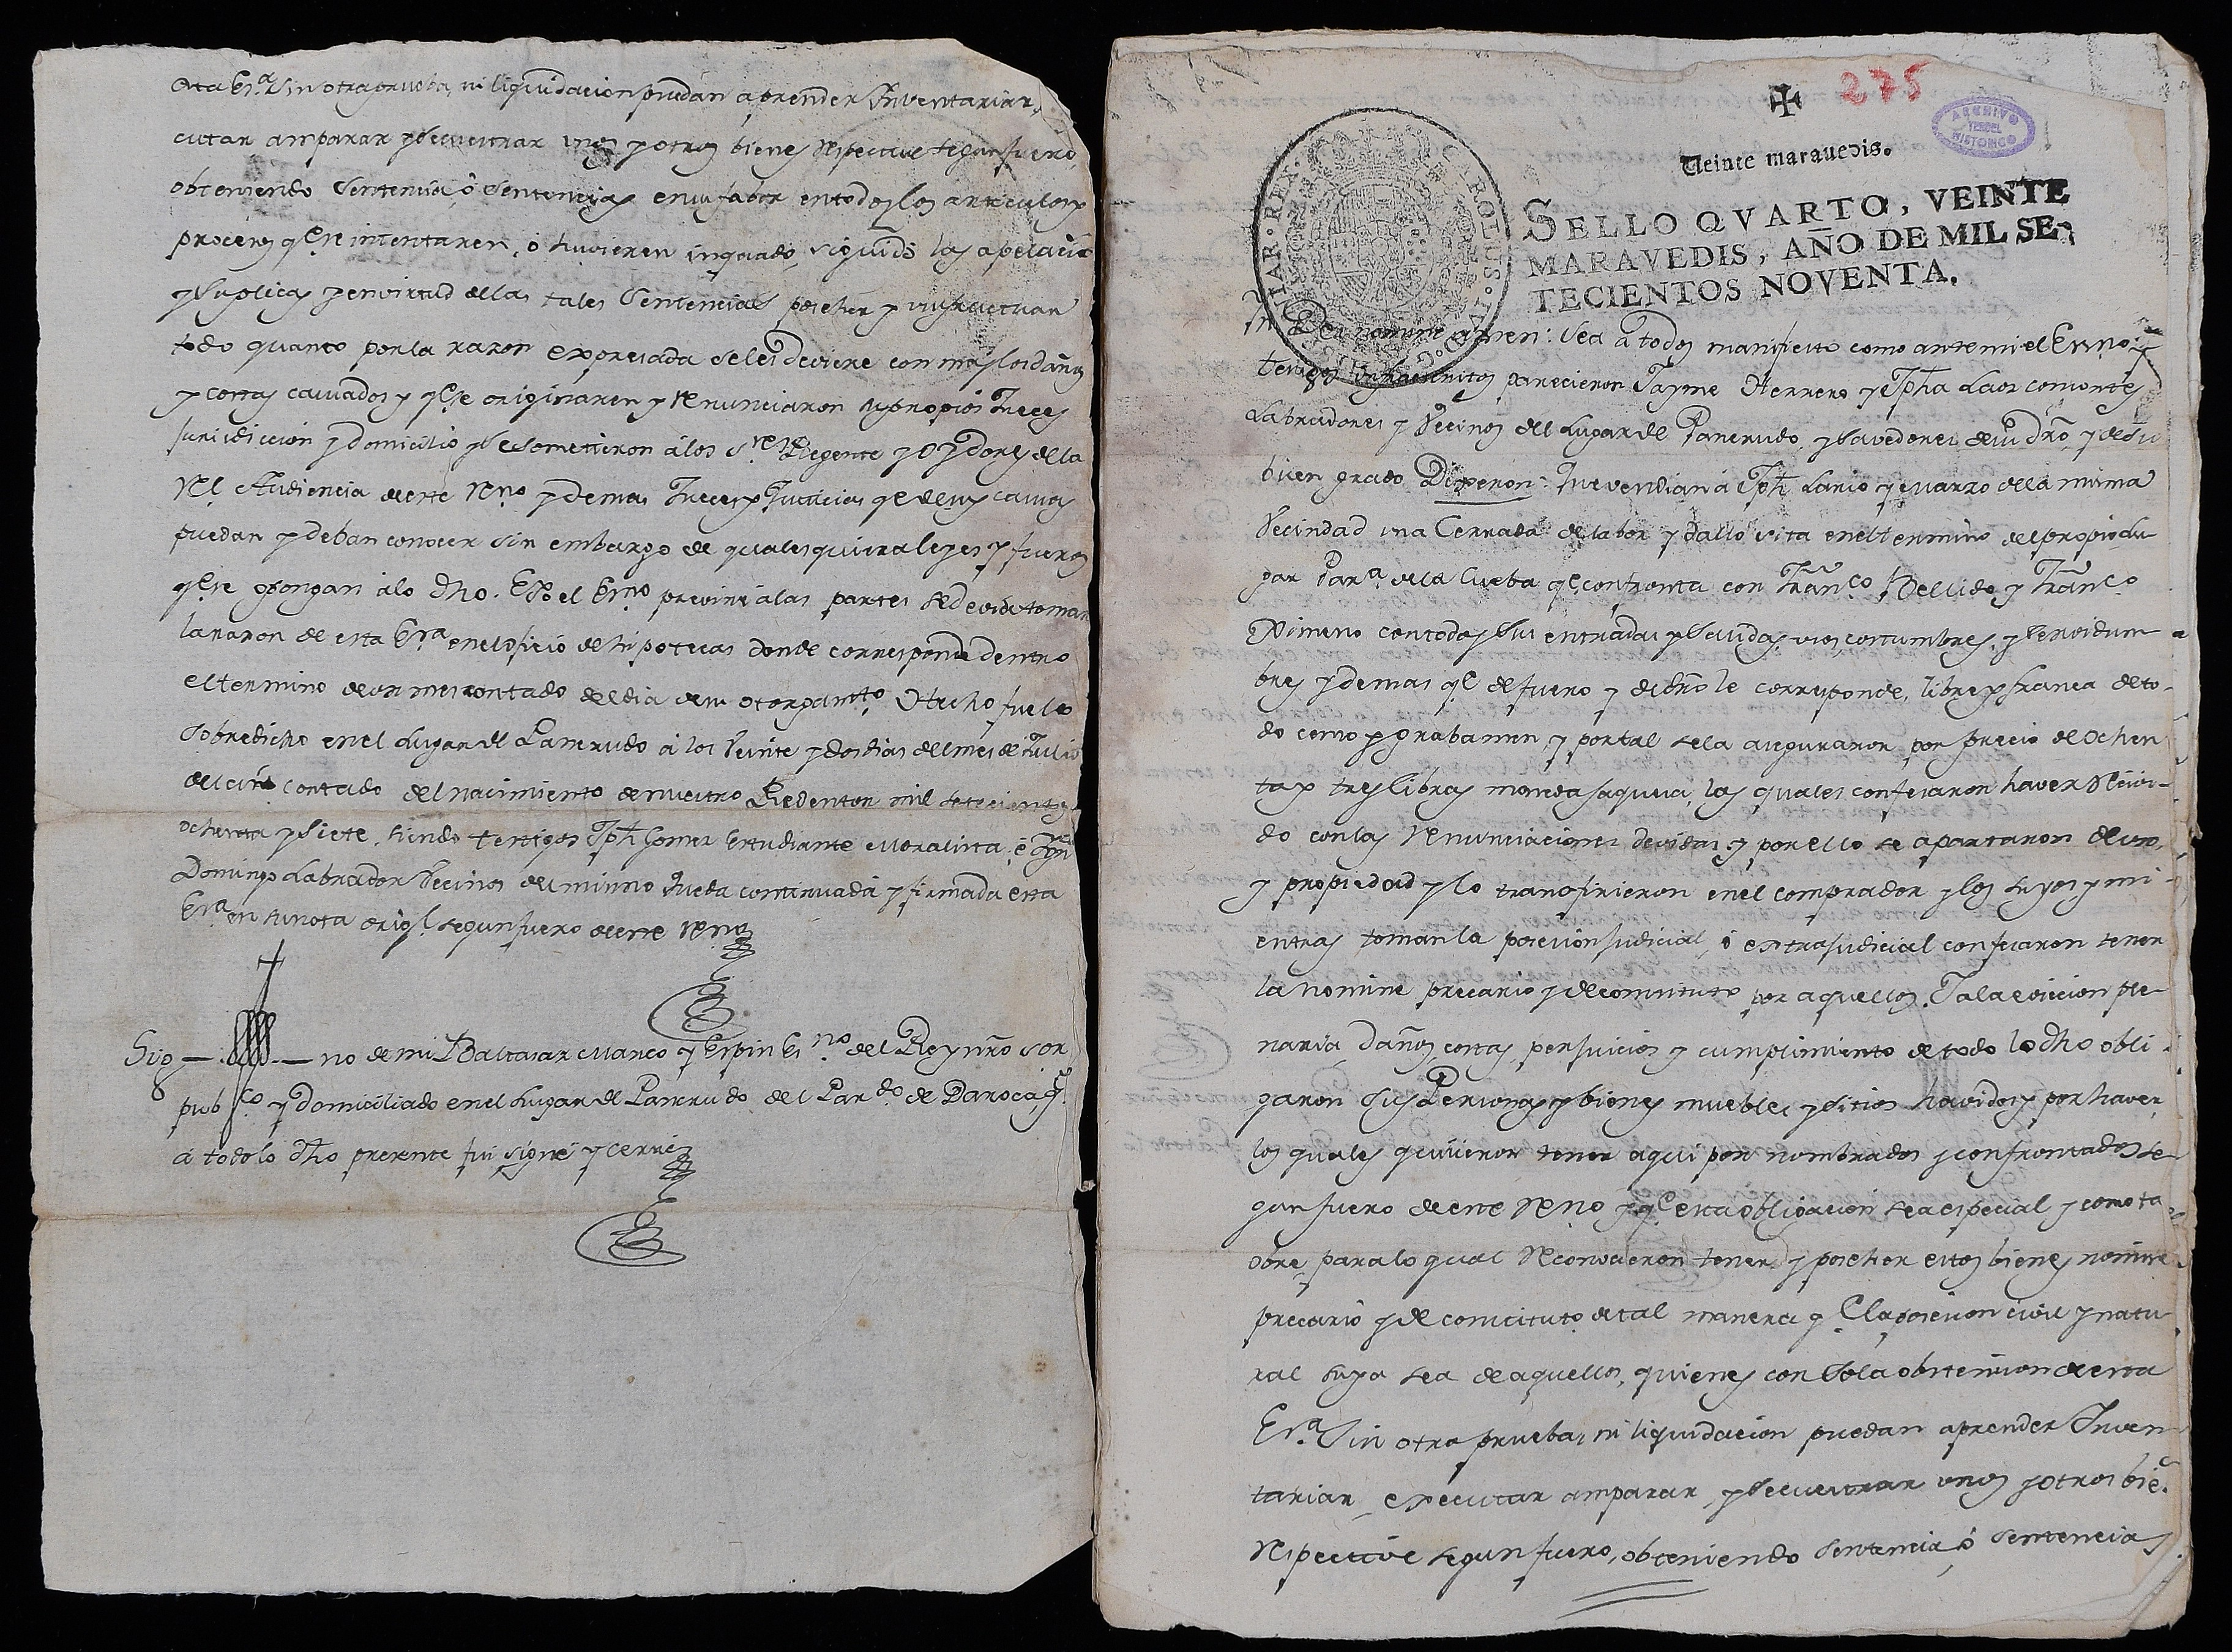 esta Es.ra sin otra prueba, ni liquidacion puedan aprender Inventariar,
cutar amparar y secuestrar unos y otros bienes respective segun fuero,
obteniendo Sentencia, ô Sentencias en su fabor en todos los articulos y
procesos q.e se intentaren, ó huvieren incoado, siguiendo las apelacio
y suplicas y en virtud de las tales Sentencias poseher y usufructuar
todo quanto por la razon expresada se les deviere con mas los daños
y costas causados y q.e se originaren y renunciaron sus propios Jueces
Jurisdiccion y domicilio y se sometieron á los S.res Regente y Oydores de la
Rl. Audiencia de este Reno y demas Jueces y Justicias q.e de sus causas
puedan y deban conocer sin embargo de qualesquiera leyes y fueros
q.e se opongan á lo dho. E Yo el Esno previne á las partes se devia tomar
la razon de esta Esra en el oficio de hipotecas donde corresponde dentro
el termino de un mes contado del dia de su otorgamto. Hecho fue lo
sobredicho en el Lugar de Pancrudo á los Veinte y dos dias del mes de Julio
del año contado del nacimiento de nuestro Redentor mil setecientos
ochenta y siete, siendo testigos Jph Gomez Estudiante Moralista, é
Domingo Labrador Vecinos del mismo Queda continuada y firmada esta
Esra en su nota origl. segun fuero de este Reno
Sig — — no de mi Baltasar Marco y Espin Es.no del Rey nro Sor
pub.co y domiciliado en el Lugar de Pancrudo del Par.do de Daroca, q.
á todo lo dho presente fui signé y cerré
275
ARCHIVO HISTORICO TERUEL
Veinte marauedis.
SELLO QVARTO, VEINTE
MARAVEDIS, AÑO DE MIL SE-
TECIENTOS NOVENTA.
CAROLUS
HISPANIAR. REX.
In Dei nomine amen: Sea á todos manifiesto como ante mi el Esno y
testigos infraescritos parecieron Jayme Herrero y Jpha Laos consortes
Labradores y Vecinos del Lugar de Pancrudo, y savedores de su dro, y de su
buen grado Dixeron: Que vendian á Jph Lario y Marzo de la misma
Vecindad una Cerrada de labor y dallo sita en el termino del propio Lu-
gar Par.a de la Cueba q.e confronta con Franco Bellido y Franco
Ximeno con todas sus entradas y salidas, usos, costumbres, y servidum-
bres y demas q.e de fuero y de dro le corresponde, libre y franca de to-
do censo y grabamen, y por tal se la aseguraron por precio de ochen
ta y tres libras moneda Jaquesa, las quales confesaron haver recivi-
do con las renunciaciones devidas, y por ello se apartaron de uso,
y propiedad y lo transfirieron en el comprador y los suyos y mi-
entras toman la posesion judicial, ó extrajudicial confesaron tener
la nomine precario y de constituto por aquellos. Y á la eviccion ple-
naria, daños, costas, perjuicios y cumplimiento de todo lo dho obli-
garon sus Personas y bienes muebles y sitios havidos y por haver,
los quales quisieron tener aqui por nombrados y confrontados se-
gun fuero de este Reno y q.e esta obligacion sea especial y como ta
obre, para lo qual reconocieron tener y posehar estos bienes nomine
precario y de constituto de tal manera q.e la posesion civil y natu-
ral suya sea de aquellos, quienes con sola obstension de esta
Esra sin otra prueba, ni liquidacion puedan aprender Inven
tariar, executar amparar, y secuestrar unos y otros bie.
respective segun fuero, obteniendo sentencia, ó sentencias